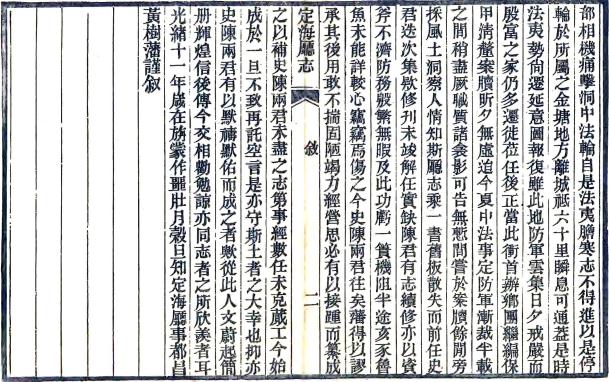 部相機痛擊洞中法輪自是法夷膽寒志不得進以是停
輪於所屬之金塘地方離城祗六十里瞬息可通蓋是時
法夷勢尙遷延意圖報復雖此地防軍雲集日夕戒嚴而
殷富之家仍多遷徙莅任後正當此衝首辦鄉團繼編保
甲清釐案牘昕夕無虛迨今夏中法事定防軍漸裁半載
之間稍盡厥職質諸衾影可告無慙間嘗於案牘餘閒旁
採風土洞察人情知斯廳志乘一書舊板散失而前任史
君迭次集欵修刋未竣解任實缺陳君有志續修亦以資
斧不濟防務殷繁無暇及此功虧一簣機阻半途亥豕魯
魚未能詳較心竊竊焉傷之今史陳兩君往矣藩得以謬
承其後用敢不揣固陋竭力經營思必有以接踵而纂成
定海廳志
敘
二
之以補史陳兩君未盡之志第事經數任未克蕆工今始
成於一旦不致再託空言是亦守斯土者之大幸也抑亦
史陳兩君有以默禱獸佑而成之者歟從此人文蔚起簡
册輝煌信後傳今交相勸勉諒亦同志者之所欣羙者耳
光緒十一年歲在旃蒙作噩壯月穀旦知定海廳事都昌
黃樹藩謹敘